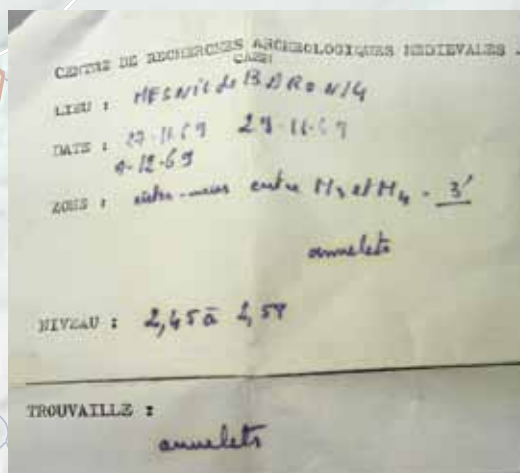 CENTRE DE RECHERCHES ARCHEOLOGIQUES MEDIEVALES
CAEN
LIEU : MESNIL de BARONIG
DATE : 27-11-69 29-11-69
4-12-69
ZONE : entre M3 et M4 - 3'
annelets
NIVEAU : 2,45 à 2,58
TROUVAILLE :
annelets